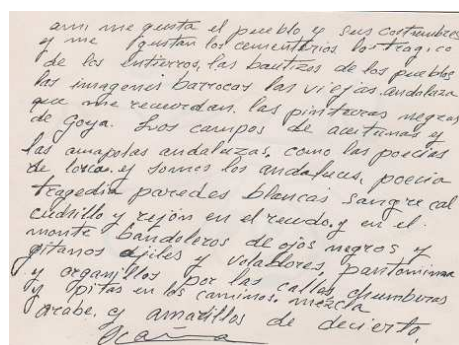 ami me gusta el pueblo y sus costumbres
y me gustan los cementerios lo tragico
de los entierros, las bautizos de los pueblos
las imagenes barrocas las viejas andaluza
que me recuerdan las pinturas negras
de goya. Los campos de aceitunas y
las amapolas andaluzas, como las poecias
de lorca. y somos los andaluces, poecia
tragedia paredes blancas sangre cal
cuchillo y rejon en el ruedo. y en el
monte bandoleros de ojos negros y
gitanos ajiles y voladores, pantomima
y organillos por las calles, chumberas
y pitas en los caminos. mezcla
arabe. y amarillos de decierto.
Ocaña